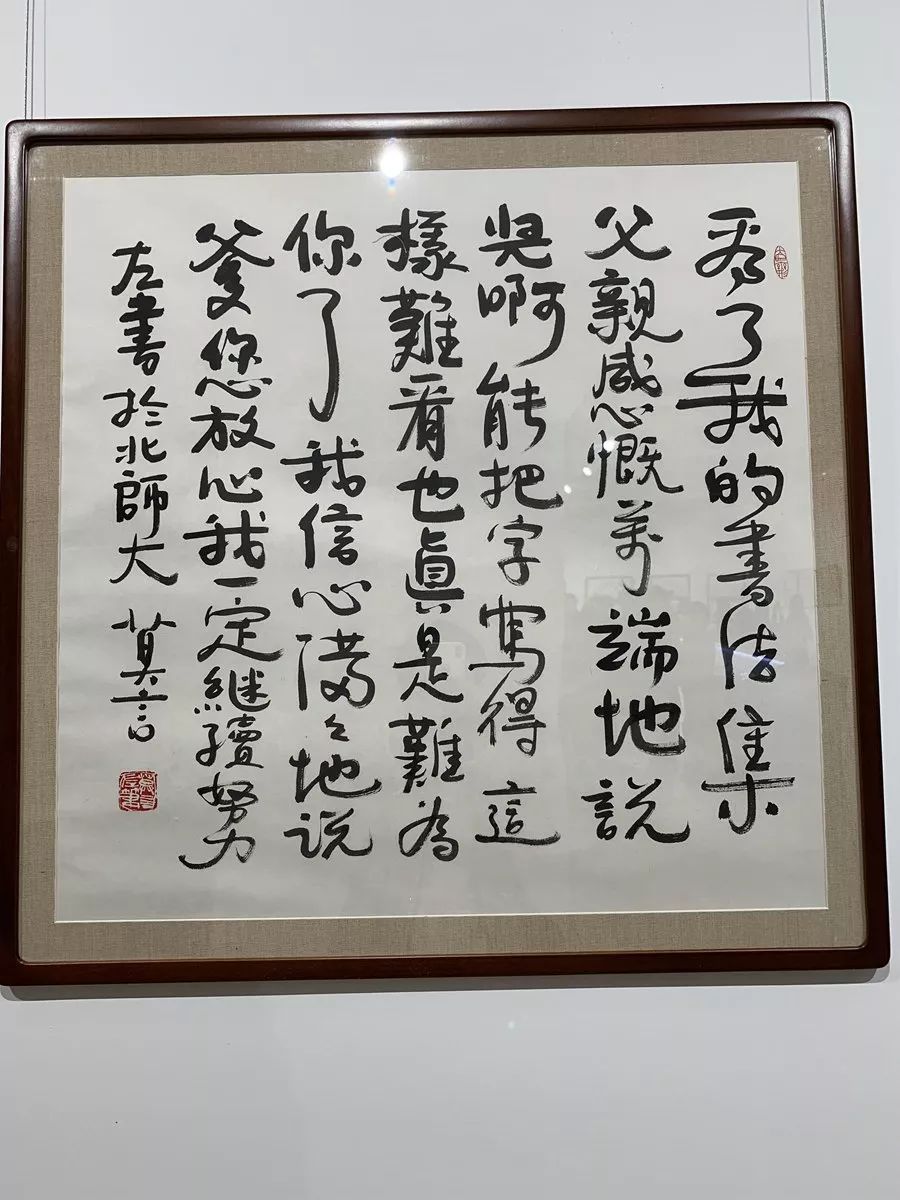 看了我的書法集
父親感慨萬端地説
児啊能把字寫得這
樣難看也眞是難為
你了我信心滿々地说
爹您放心我一定继續努力
左書於北師大 莫言